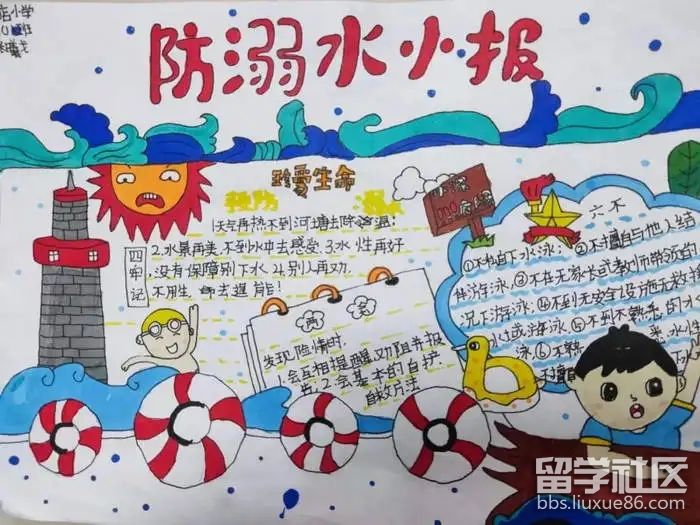 店小学
防溺水小报
珍爱生命
预防
溺水
水深
四牢记
1天气再热不到河塘去降温;
2.水景再美不到水中去感受.3.水性再好
没有保障别下水.4.别人再劝
不用生命去逞能!
两会
发现险情时.
1.会互相提醒、劝阻并报
告:2.会基本的自护
自救方法
六不
①不私自下水游泳;②不擅自与他人结
伴游泳,③不在无家长或教师带领
况下游泳,④不到无安全设施无救
⑤不到不熟悉的水
泳⑥不熟
留学社区
bbs.liuxue86.com